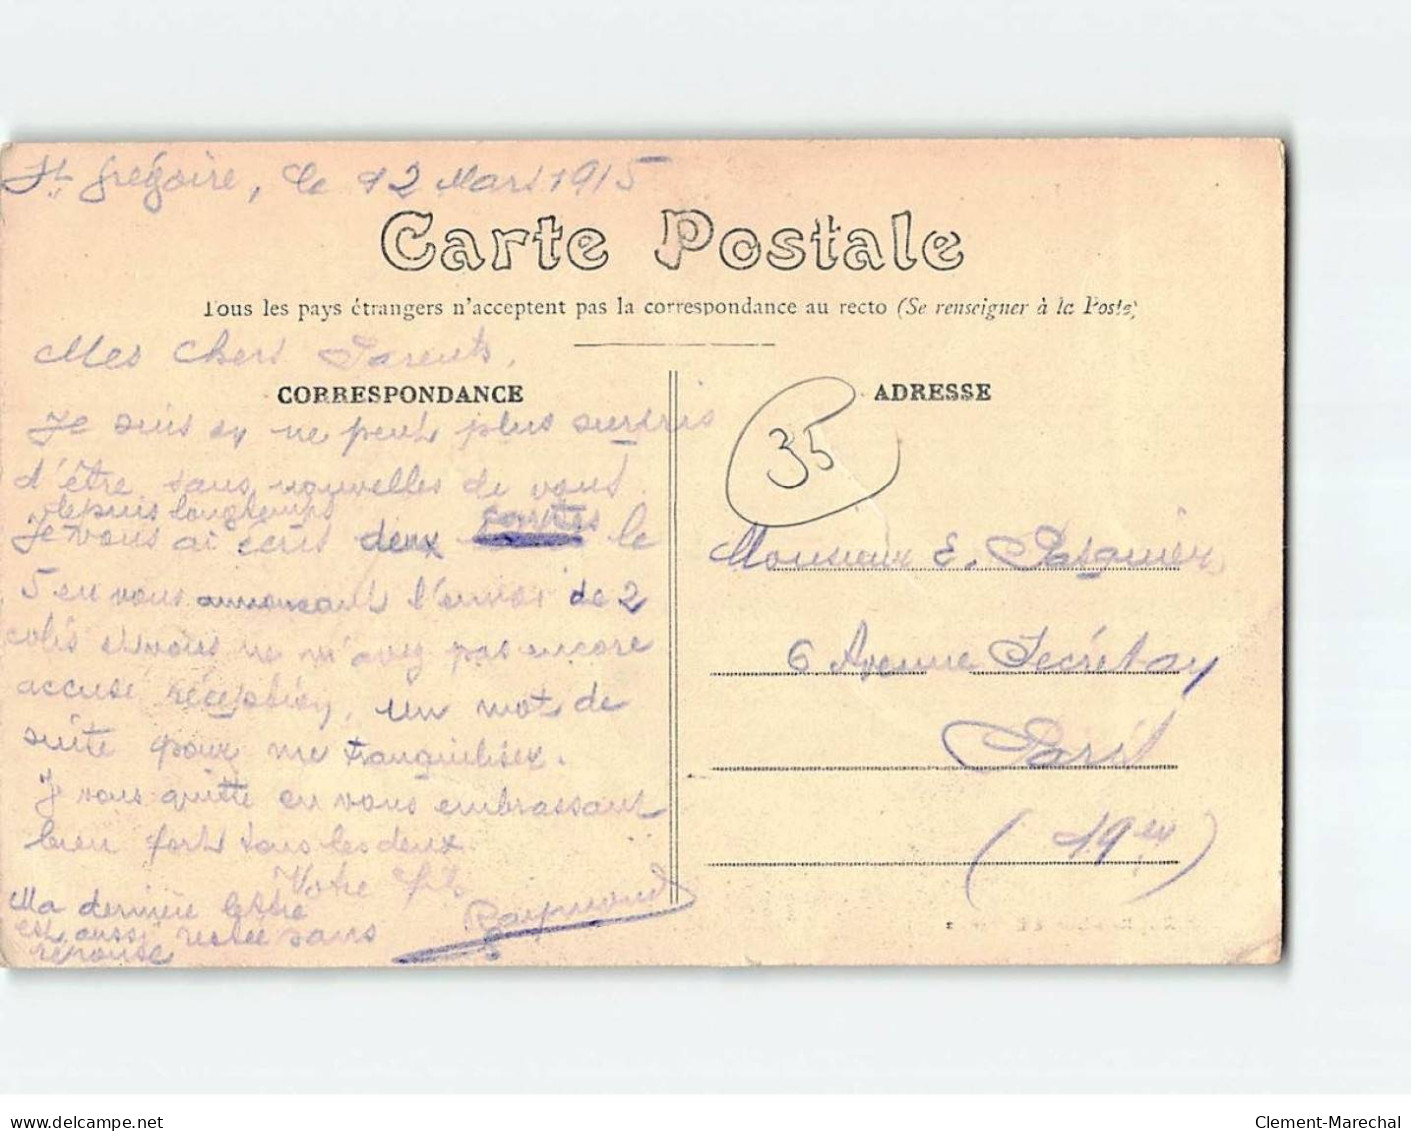 St Grégoire, le 12 Mars 1915
Carte Postale
Tous les pays étrangers n'acceptent pas la correspondance au recto (Se renseigner à la Poste)
Mes Chers Parents,
CORRESPONDANCE
Je suis on ne peut plus surpris
d'être sans nouvelles de vous
depuis longtemps
Je vous ai écris deux cartes le
5 en vous annonçant l'envoi de 2
colis et vous ne m'avez pas encore
accusé réception, un mot de
suite pour me tranquiliser.
Je vous quitte en vous embrassant
bien fort tous les deux.
Votre fils
Raymond
Ma dernière lettre
est aussi restée sans
réponse
ADRESSE
35
Monsieur E. Pasquier
6 Avenue Secrétan
Paris
(19e)
www.delcampe.net
Clement-Marechal